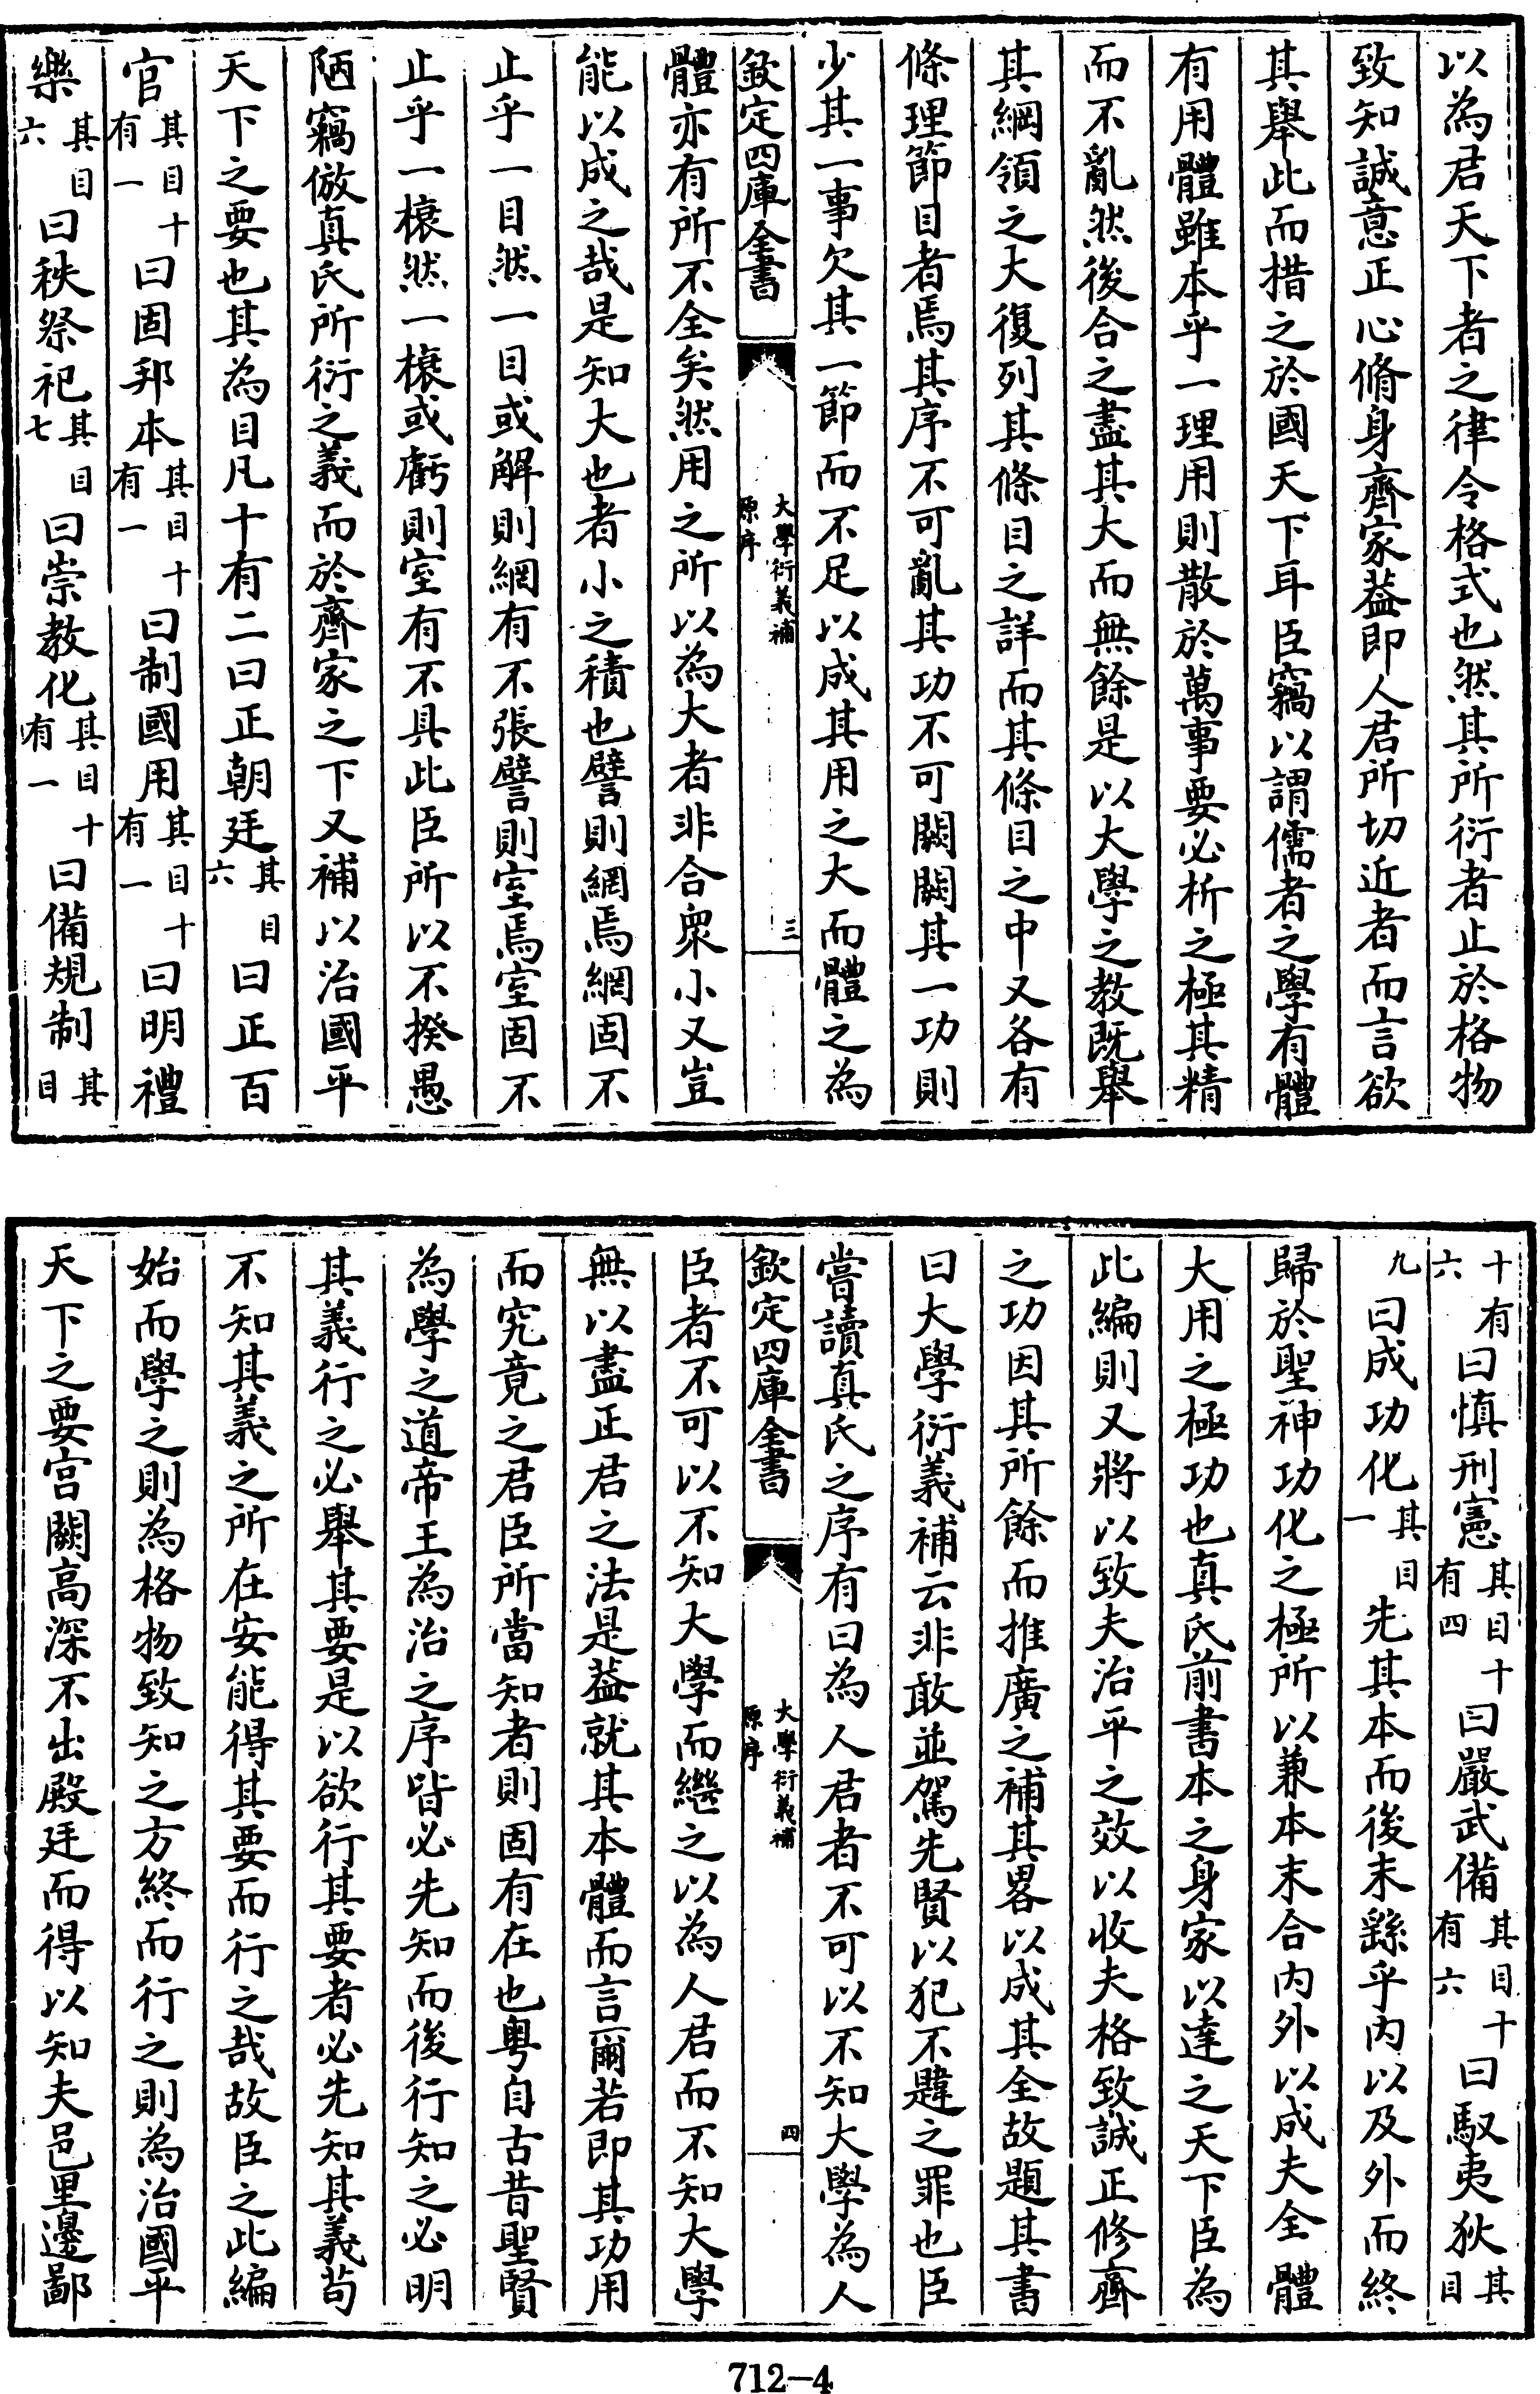 以為君天下者之律令格式也然其所衍者止於格物
致知誠意正心脩身齊家葢即人君所切近者而言欲
其舉此而措之於國天下耳臣竊以謂儒者之學有體
有用體雖本乎一理用則散於萬事要必析之極其精
而不亂然後合之盡其大而無餘是以大學之教既舉
其綱領之大復列其條目之詳而其條目之中又各有
條理節目者焉其序不可亂其功不可闕闕其一功則
少其一事欠其一節而不足以成其用之大而體之為
欽定四庫全書
大學衍義補
原序
三
體亦有所不全矣然用之所以為大者非合衆小又豈
能以成之哉是知大也者小之積也譬則網焉網固不
止乎一目然一目或解則網有不張譬則室焉室固不
止乎一榱然一榱或虧則室有不具此臣所以不揆愚
陋竊倣真氏所衍之義而於齊家之下又補以治國平
天下之要也其為目凡十有二曰正朝廷其目六曰正百
官其目十有一曰固邦本其目十有一曰制國用其目十有一曰明禮
樂其目六曰秩祭祀其目七曰崇教化其目十有一曰備規制其目
十有六曰慎刑憲其目十有四曰嚴武備其目十有六曰馭夷狄其目
九曰成功化其目一先其本而後末繇乎內以及外而終
歸於聖神功化之極所以兼本末合內外以成夫全體
大用之極功也真氏前書本之身家以達之天下臣為
此編則又將以致夫治平之效以收夫格致誠正修齊
之功因其所餘而推廣之補其畧以成其全故題其書
曰大學衍義補云非敢並駕先賢以犯不韙之罪也臣
嘗讀真氏之序有曰為人君者不可以不知大學為人
欽定四庫全書
大學衍義補
原序
四
臣者不可以不知大學而繼之以為人君而不知大學
無以盡正君之法是葢就其本體而言爾若即其功用
而究竟之君臣所當知者則固有在也粵自古昔聖賢
為學之道帝王為治之序皆必先知而後行知之必明
其義行之必舉其要是以欲行其要者必先知其義苟
不知其義之所在安能得其要而行之哉故臣之此編
始而學之則為格物致知之方終而行之則為治國平
天下之要宫闕高深不出殿廷而得以知夫邑里邊鄙
712-4